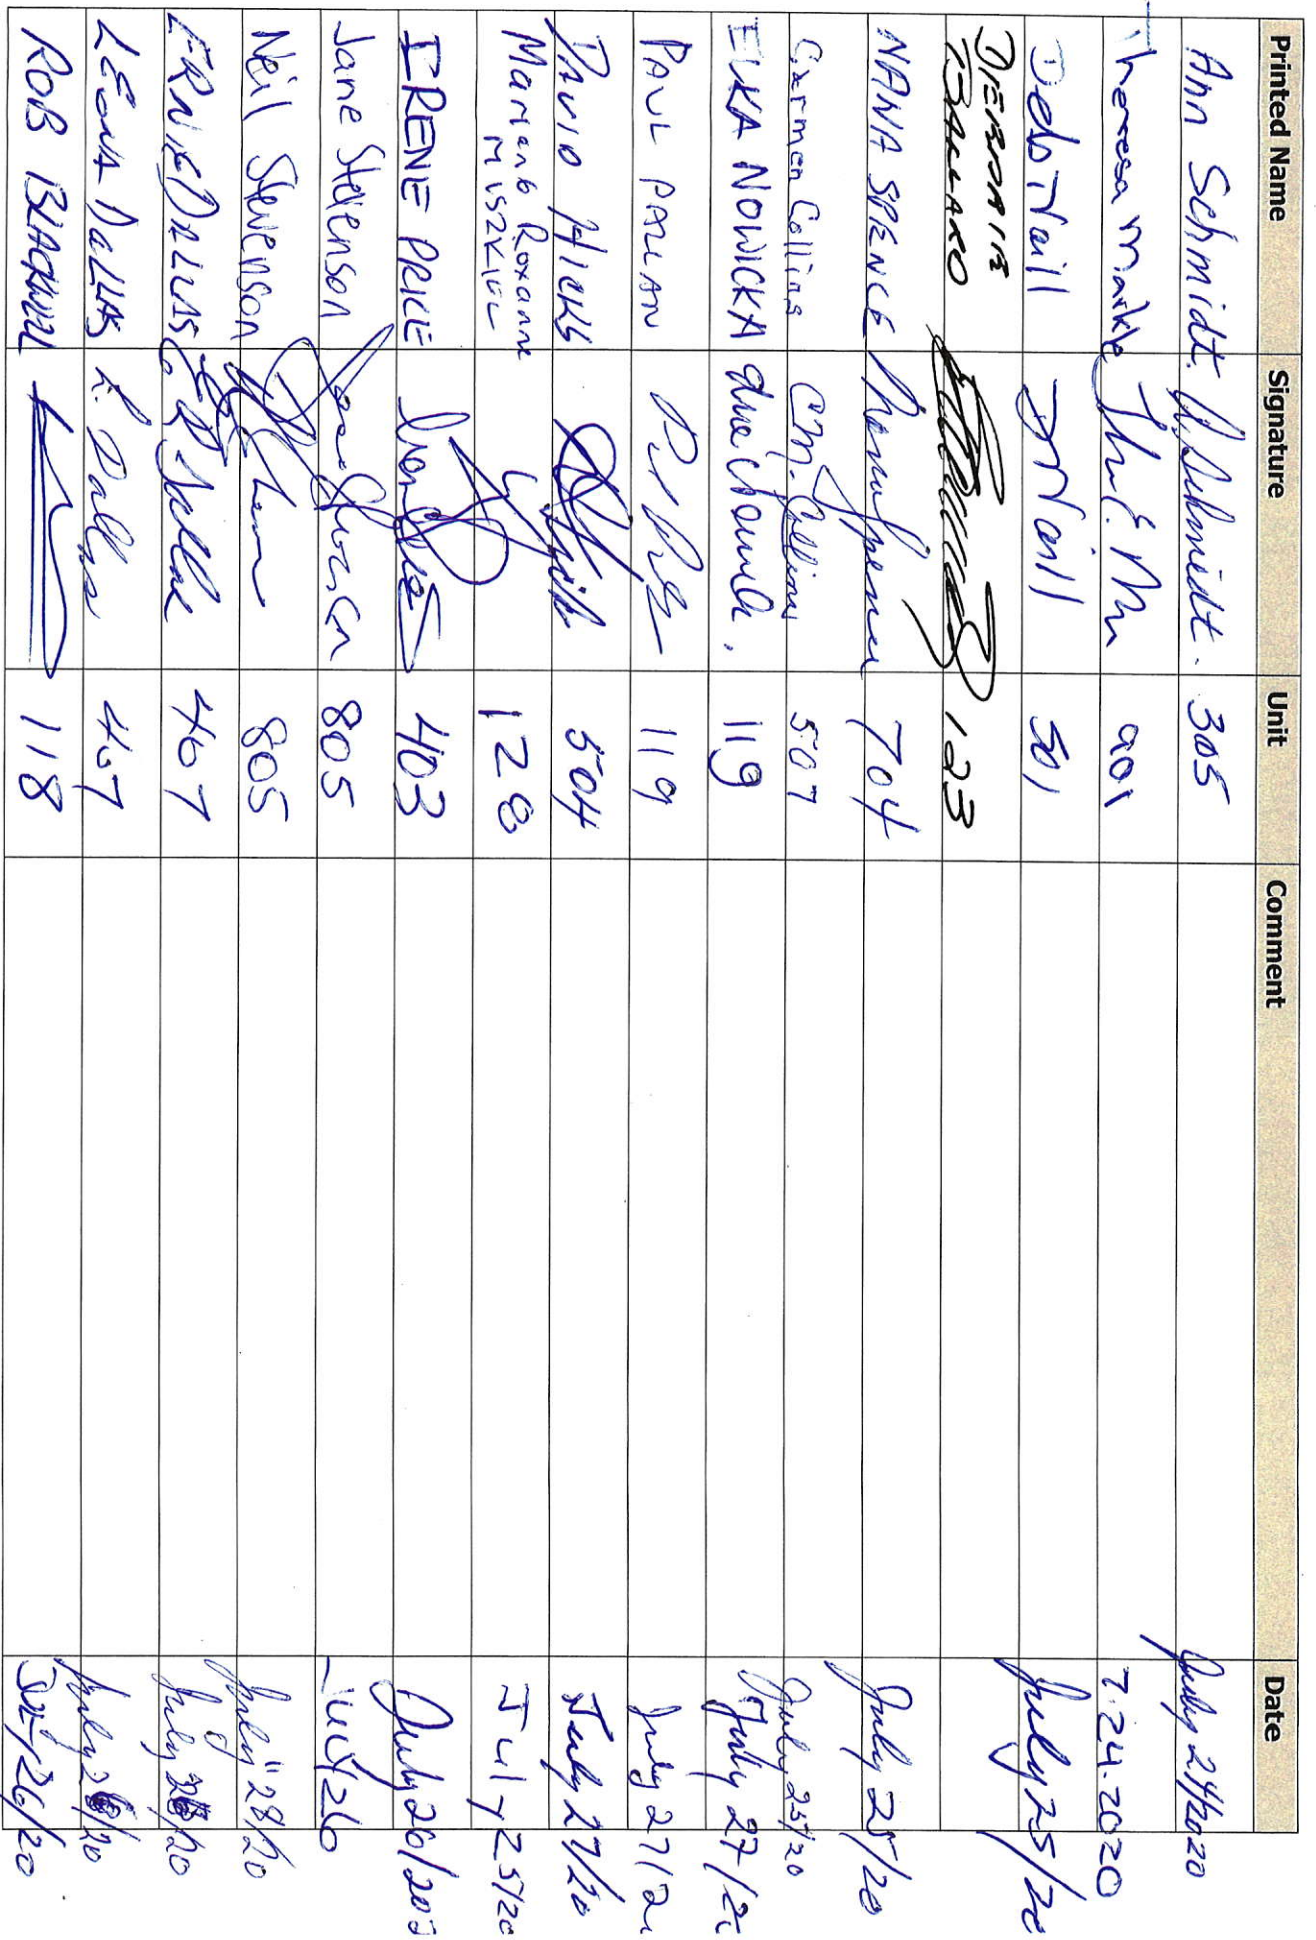 Printed Name Signature Unit Comment Date
Ann Schmidt. A. Schmidt. 305 July 24/2020
Theresa Markle 901 7.24.2020
Deb Nail D Nail 301 July 25/20
DIERDRIE
BALLARD 123
NANA SPENCE Nana Spence 704 July 25/20
Carmen Collins C.M. Collins 507 July 25/20
EWA NOWICKA 119 July 27/20
PAUL 119 July 27/20
DAVID HICKS 504 July 27/20
Roxanne
MUSZKIEL 128 July 25/20
IRENE PRICE 403 July 26/20
Jane Stevenson 805 July 26
Neil Stevenson 805 July 28/20
ERNIE DALLAS 407 July 20
LEONA DALLAS L. Dallas 407 July 20
ROB 118 26/20